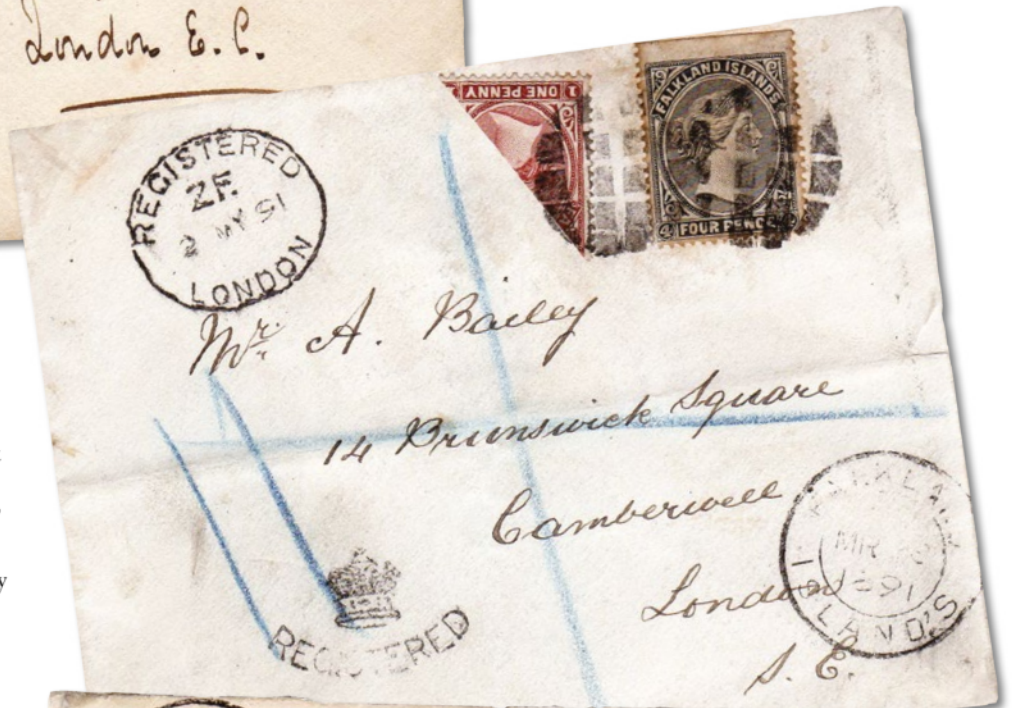 London E. C.
1 ONE PENNY
FALKLAND ISLANDS
4 FOUR PENCE
REGISTERED
ZF
2 MY 91
LONDON
Mr. A. Bailey
14 Brunswick Square
Camberwell
London
S. E.
REGISTERED
FALKLAND
MR
1891
ISLAND'S
y